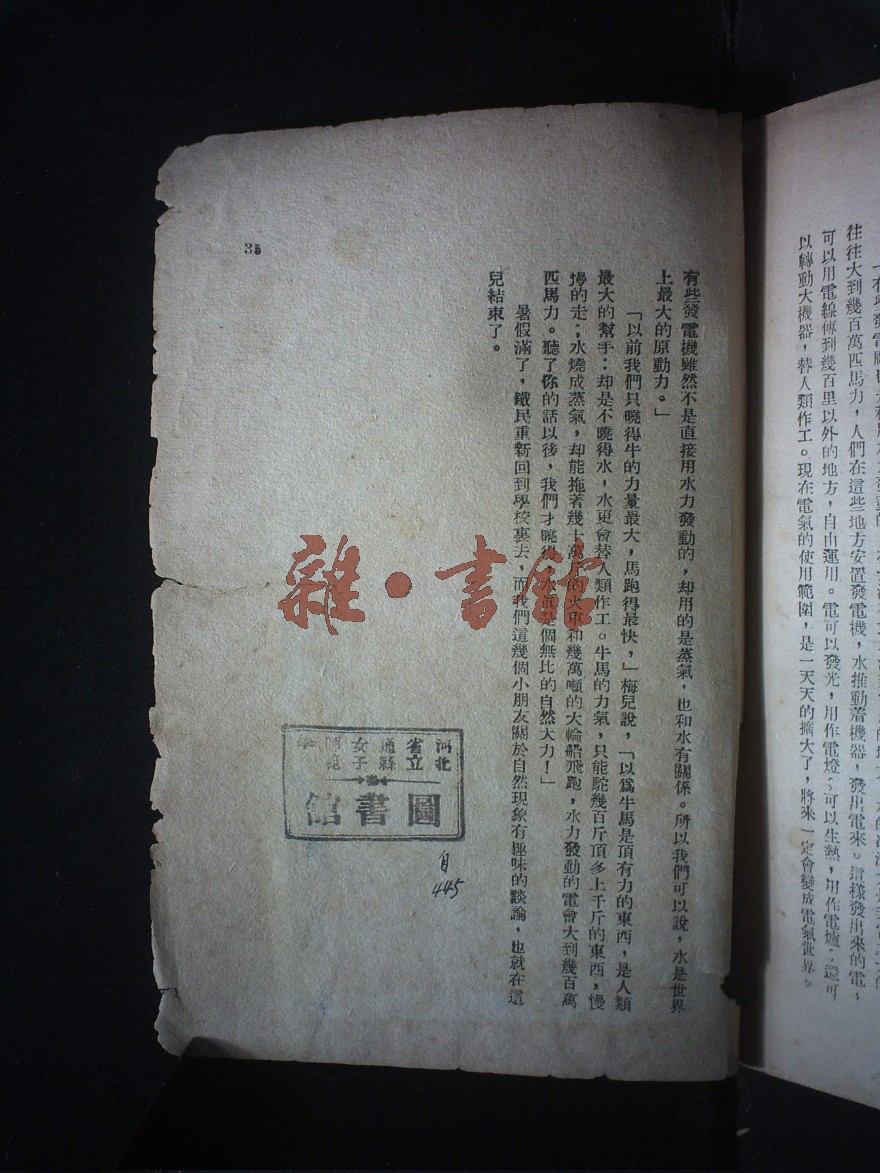 往往大到幾百萬匹馬力，人們在這些地方安置發電機，水推動着機器，發出電來。這樣發出來的電，
可以用電線傳到幾百里以外的地方，自由運用。電可以發光，用作電燈；可以生熱，用作電爐；還可
以轉動大機器，替人類作工。現在電氣的使用範圍，是一天天的擴大了，將來一定會變成電氣世界。
有些發電機雖然不是直接用水力發動的，却用的是蒸氣，也和水有關係。所以我們可以說，水是世界
上最大的原動力。」
「以前我們只曉得牛的力量最大，馬跑得最快，」梅兒說，「以爲牛馬是頂有力的東西，是人類
最大的幫手；却是不曉得水，水更會替人類作工。牛馬的力氣，只能駝幾百斤頂多上千斤的東西，慢
慢的走；水燒成蒸氣，却能拖着幾十萬斤的火車和幾萬噸的大輪船飛跑，水力發動的電會大到幾百萬
匹馬力。聽了你的話以後，我們才曉得水眞是個無比的自然大力！」
暑假滿了，鐵民重新回到學校裏去，而我們這幾個小朋友關於自然現象有趣味的談論，也就在這
兒結束了。
35
雜·書館
河北省立通縣女子師範學
圖書館
自
445